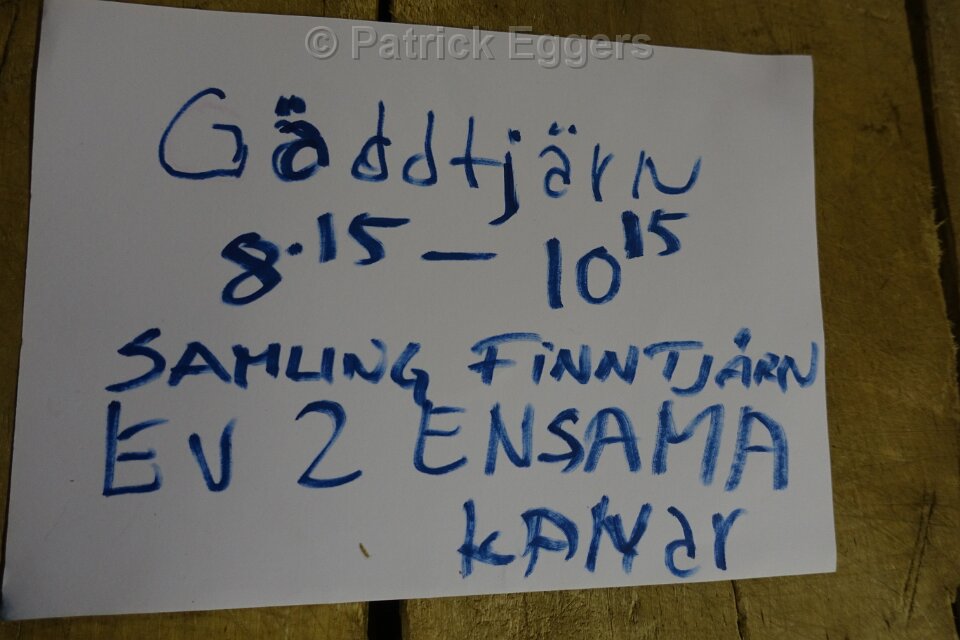 © Patrick Eggers
Gäddtjärn
8.15 – 10 15
SAMLING FINNTJÄRN
EV 2 ENSAMA
KANAr